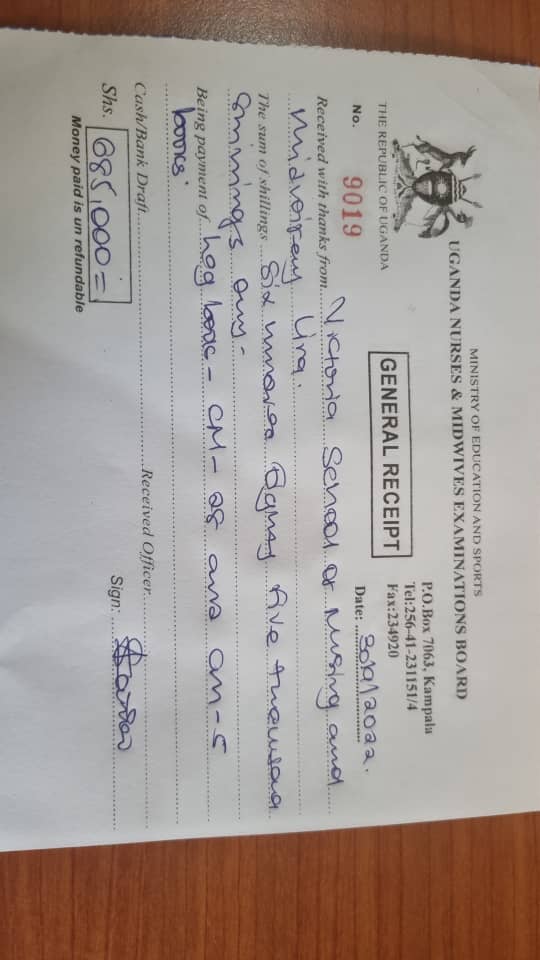 MINISTRY OF EDUCATION AND SPORTS
UGANDA NURSES & MIDWIVES EXAMINATIONS BOARD
P.O.Box 7063, Kampala
Tel:256-41-231151/4
Fax:234920
THE REPUBLIC OF UGANDA
GENERAL RECEIPT
No. 9019
Date: 30/9/2022.
Received with thanks from Victoria School of Nursing and
midwifery Lira.
The sum of shillings Six hundred Eighty five thousand
shillings only-
Being payment of log book - CM - 28 and CN - 5
books.
Cash/Bank Draft Received Officer
Shs. 685,000=
Sign:
Money paid is un refundable